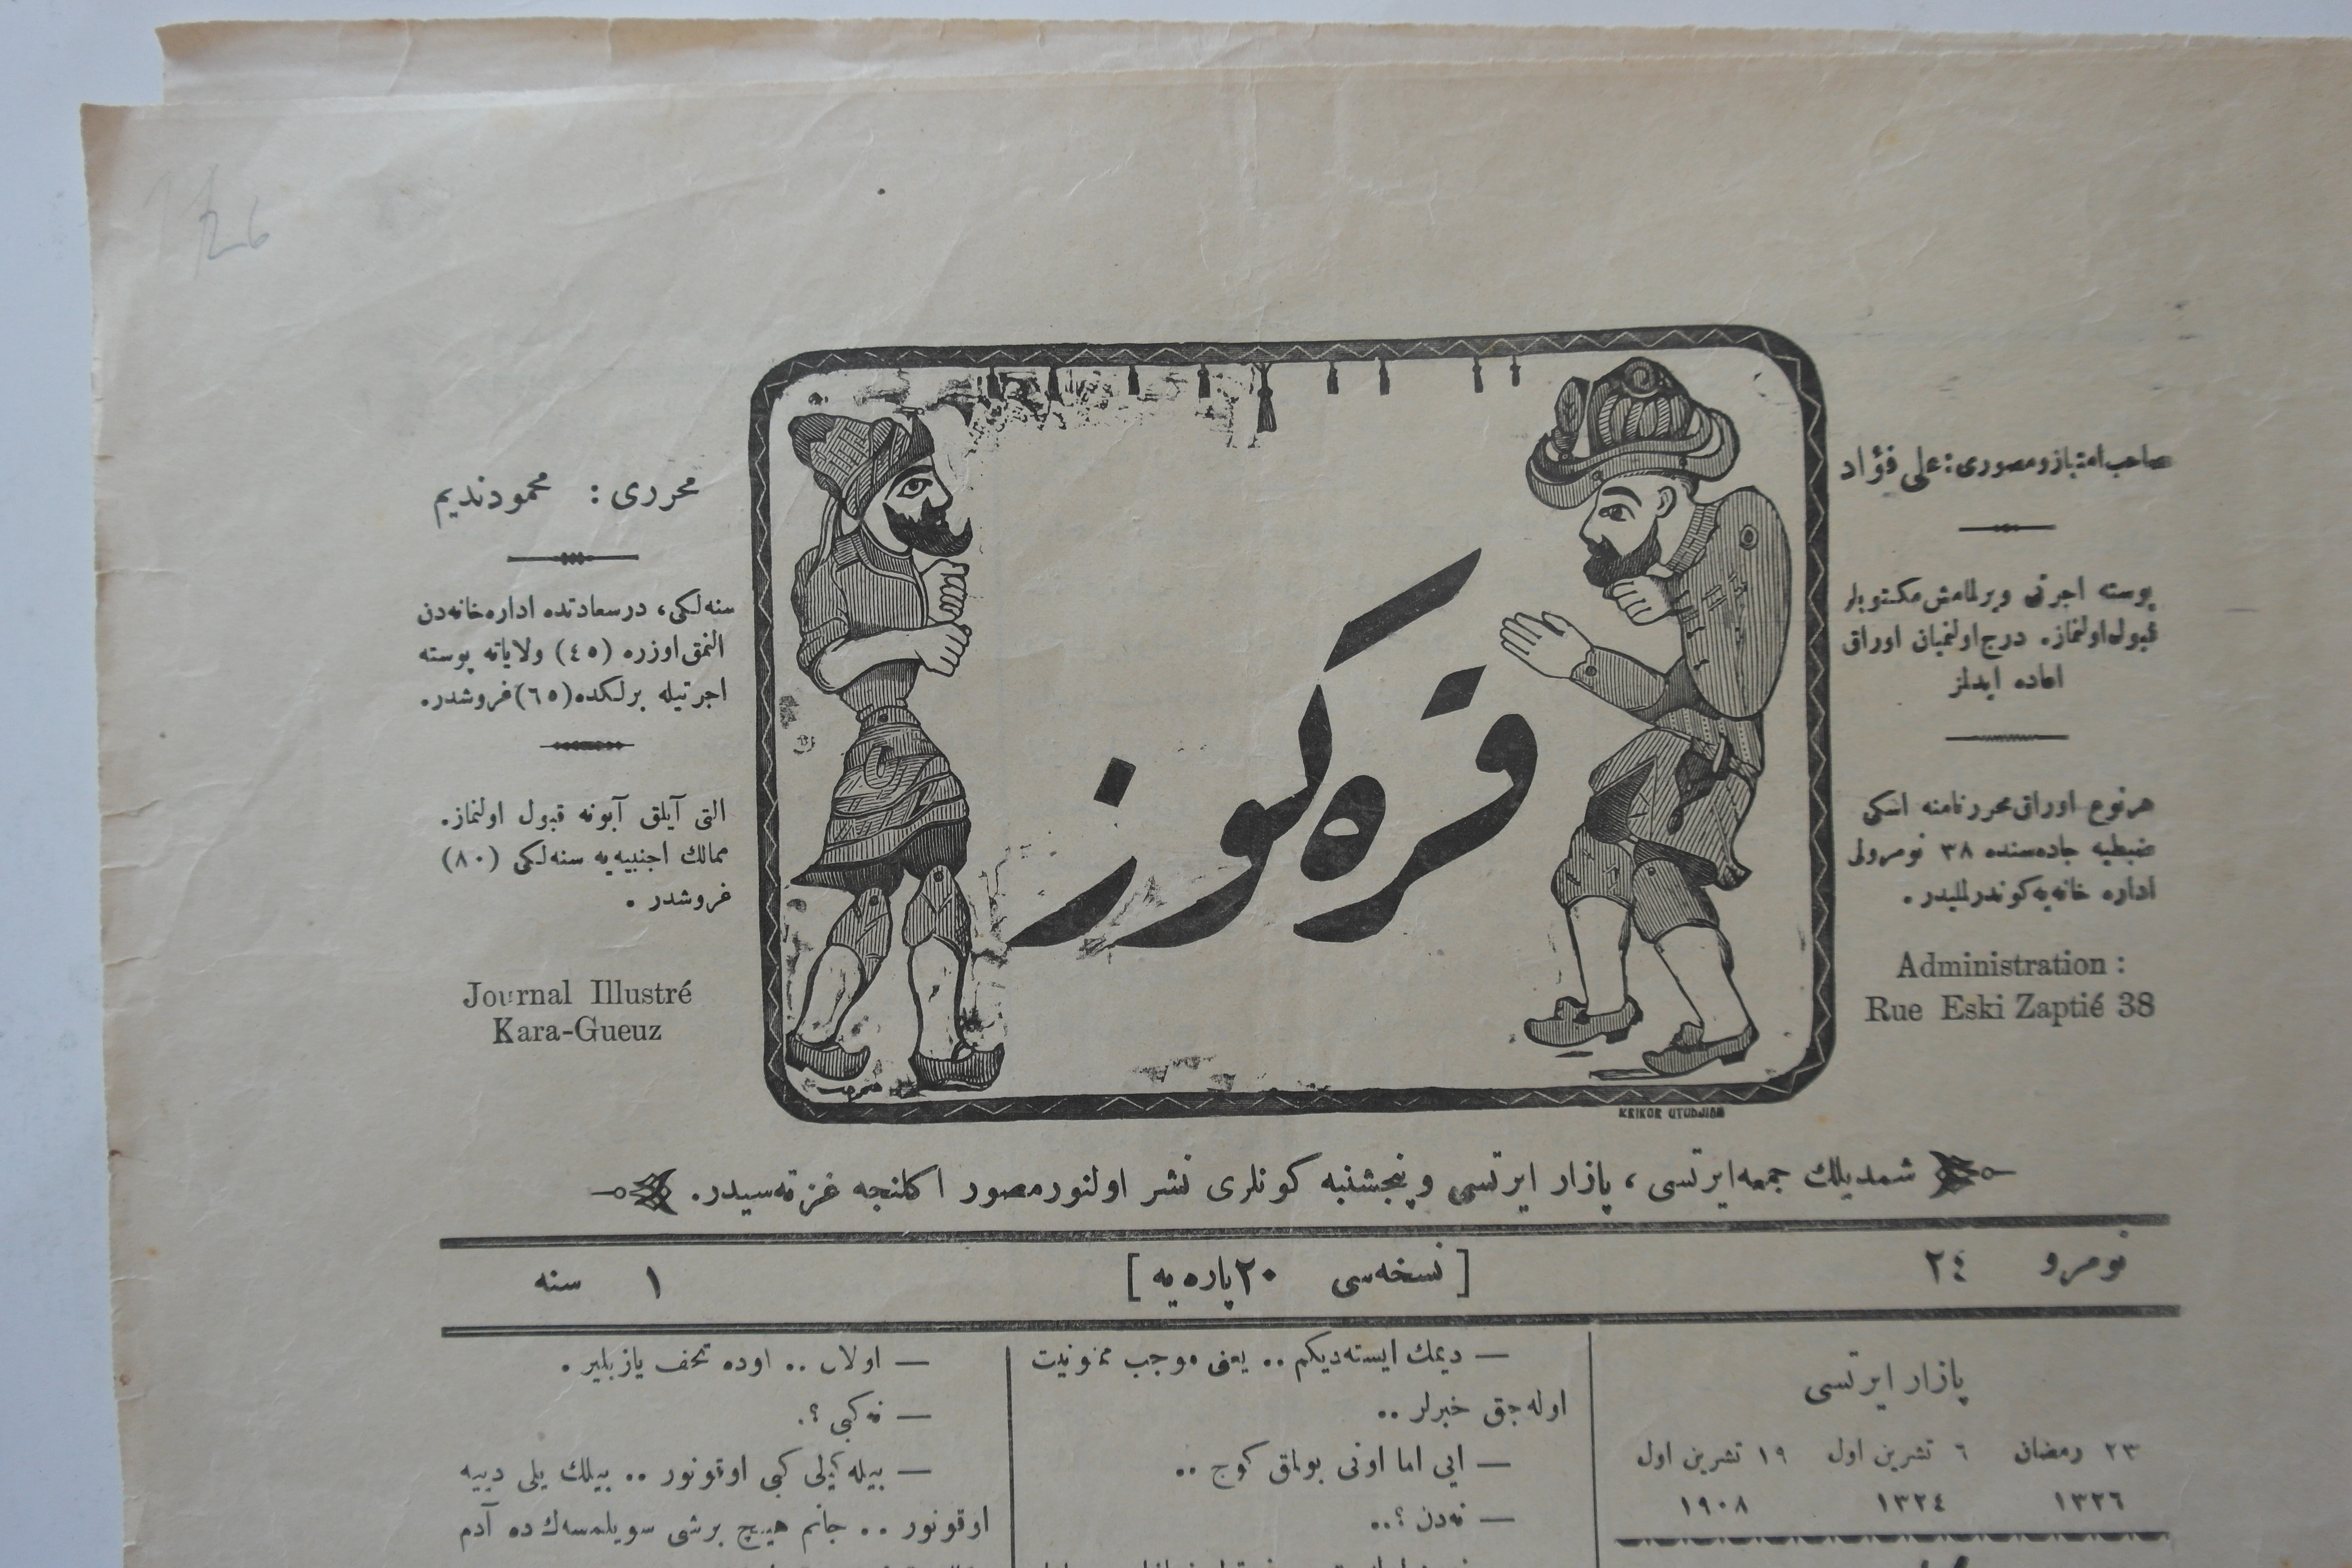 26
صاحب امتیاز و مصوری : علی فؤاد
پوسته اجرتی ویرلمامش مکتوبلر
قبول اولنماز. درج اولنمیان اوراق
اعاده ایدلز
هر نوع اوراق محرر نامنه اسکی
ضبطیه جاده‌سنده ٣٨ نومرولی
اداره خانه‌یه کوندرلملیدر .
Administration :
Rue Eski Zaptié 38
قره‌كوز
KRIKOR UTUDJIAN
محرری : محمود ندیم
سنه‌لکی، درسعادتده اداره‌خانه‌دن
النمق اوزره (٤٥) ولایاته پوسته
اجرتیله برلکده (٦٥) غروشدر.
التی آیلق آبونه قبول اولنماز.
ممالك اجنبیه‌یه سنه‌لکی (٨٠)
غروشدر .
Journal Illustré
Kara-Gueuz
شمدیلك جمعه‌ایرتسی ، پازار ایرتسی و پنجشنبه کونلری نشر اولنور مصور اکلنجه غزته‌سیدر.
نومرو ٢٤
[ نسخه‌سی ٢٠ پاره‌یه ]
١ سنه
پازار ایرتسی
٢٣ رمضان ٦ تشرین اول ١٩ تشرین اول
١٣٢٦ ١٣٢٤ ١٩٠٨
— دیمك ایسته‌دیکم .. یعنی موجب ممنونیت
اوله‌جق خبرلر ..
— ایی اما اونی بولمق کوج ..
— نه‌دن ؟..
— اولان .. اوده تحف یازبلیر .
— نه کبی ؟.
— بیله‌کیلی کبی اوقونور .. بیلك یلی دییه
اوقونور .. جانم هیچ برشی سویلمسه‌ك ده آدم